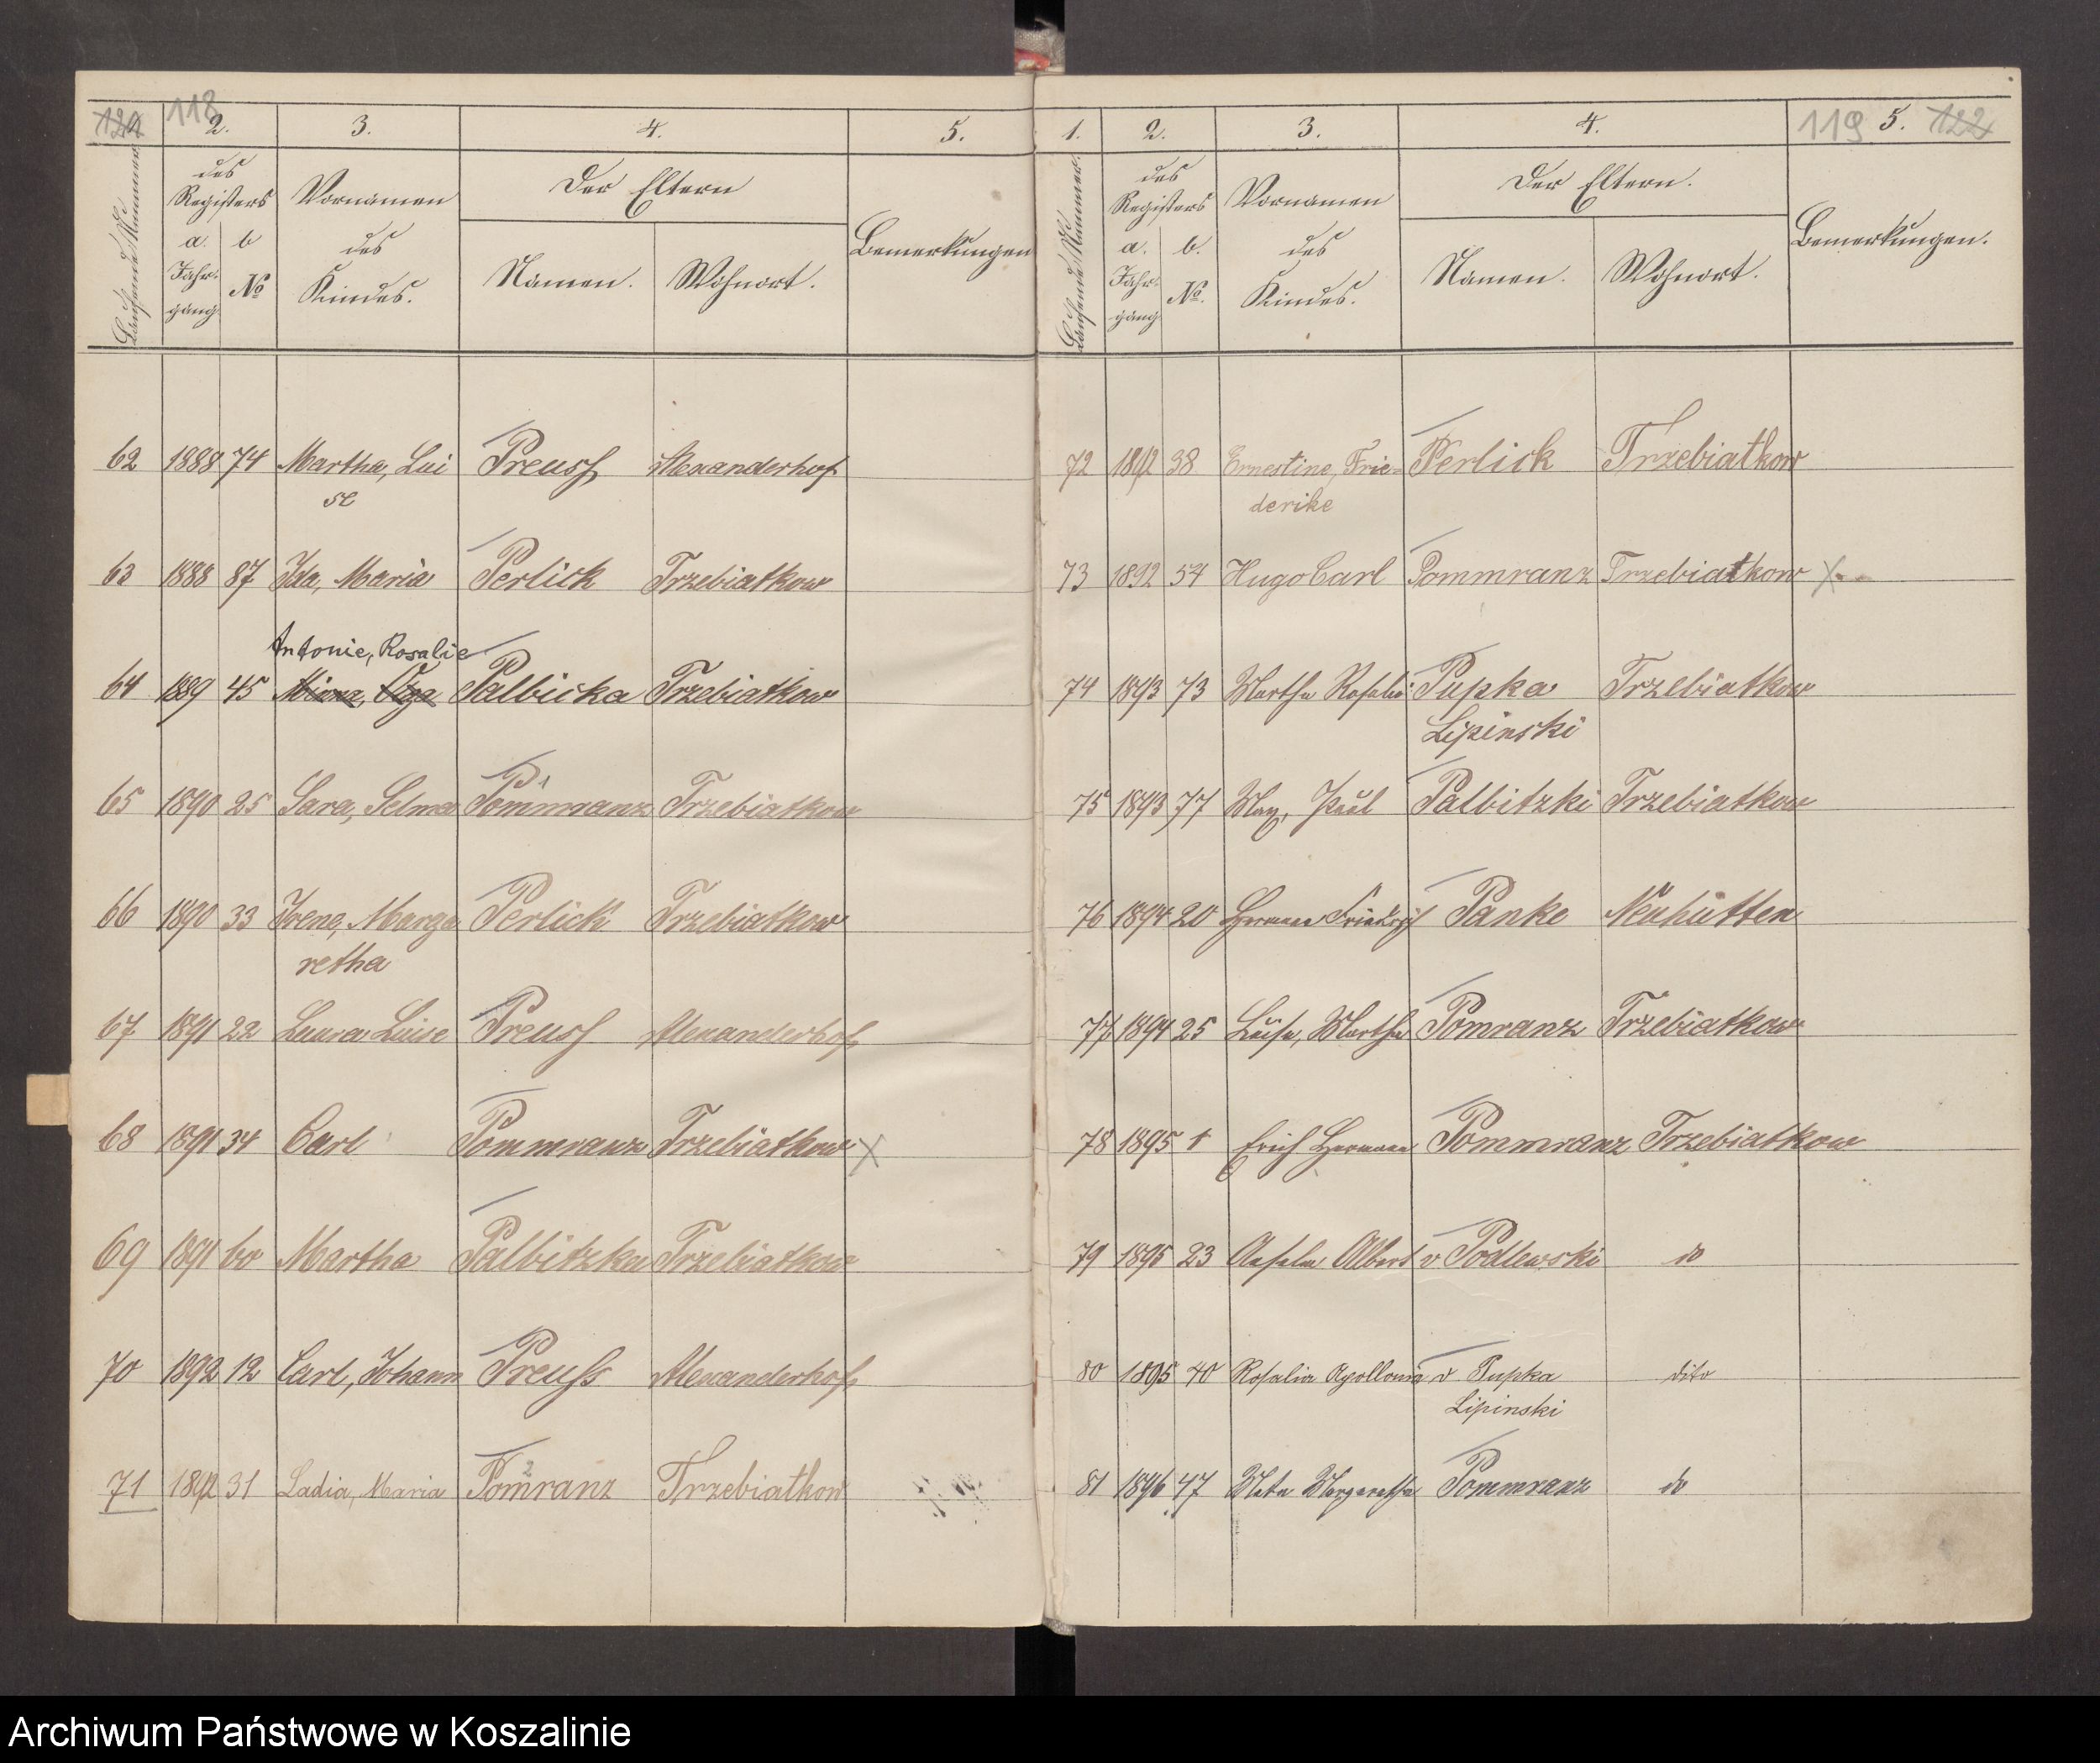 121 118
2. 3. 4. 5.
Laufende Nummer
des Registers
Vornamen des Kindes.
Der Eltern
Bemerkungen
a. Jahrgang b No
Namen. Wohnort.
62 1888 74 Martha, Lui Preuss Alexanderhof
se
63 1888 87 Ida, Maria Perlick Trzebiatkow
Antonie, Rosalie
64 1889 45 Palbicka Trzebiatkow
65 1890 25 Sara, Selma Pommranz Trzebiatkow
66 1890 33 Irene, Marga Perlick Trzebiatkow
retha
67 1891 22 Laura Luise Preuss Alexanderhof
68 1891 34 Carl Pommranz Trzebiatkow X
69 1891 60 Martha Palbitzka Trzebiatkow
70 1892 12 Carl, Johann Preuss Alexanderhof
71 1892 31 Ladia, Maria Pomranz Trzebiatkow
119 122
1. 2. 3. 4. 5.
Laufende Nummer.
des Registers
Vornamen des Kindes.
Der Eltern.
Bemerkungen.
a. Jahrgang b. No.
Namen. Wohnort.
72 1892 38 Ernestine, Frie= Perlick Trzebiatkow
derike
73 1892 54 Hugo Carl Pommranz Trzebiatkow X
74 1893 73 Martha Rosalie Pupka Trzebiatkow
Lipinski
75 1893 77 Max, Paul Palbitzki Trzebiatkow
76 1894 20 Hermann Friedrich Panke Neuhütten
77 1894 25 Luise, Martha Pomranz Trzebiatkow
78 1895 1 Erich Hermann Pommranz Trzebiatkow
79 1895 23 Albert v Podlewski do
80 1895 40 Rosalia Apollonia v Pupka dito
Lipinski
81 1896 47 Meta Margarethe Pommranz do
Archiwum Państwowe w Koszalinie